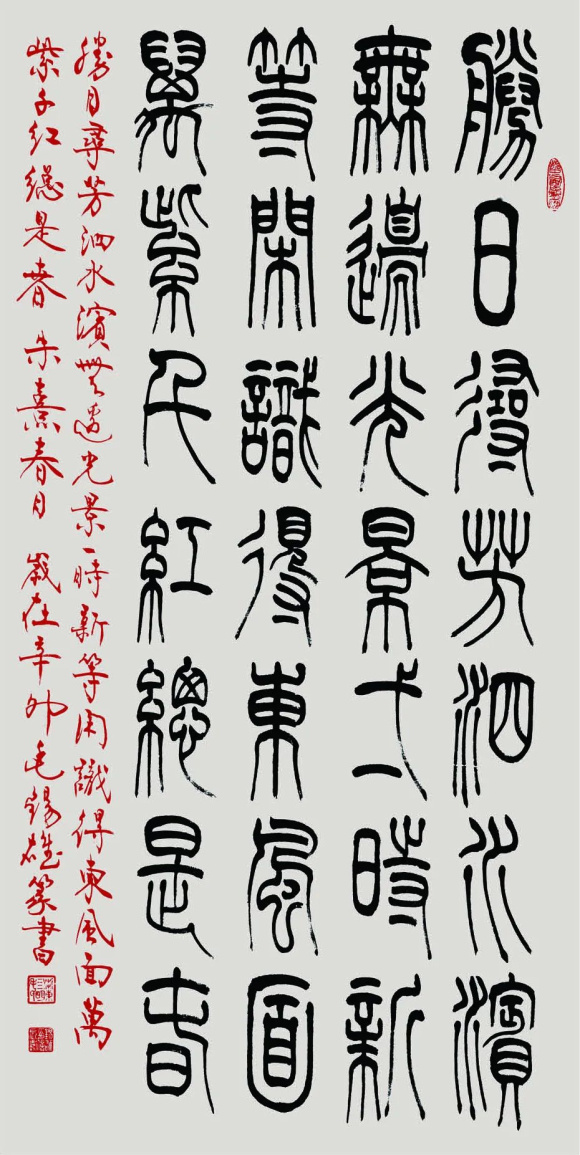 勝日尋芳泗水濱
無邊光景一時新
等閑識得東風面
萬紫千紅總是春
勝日尋芳泗水濱無邊光景一時新等閑識得東風面萬
紫千紅總是春 朱熹春日 歲在辛卯毛錫雄篆書